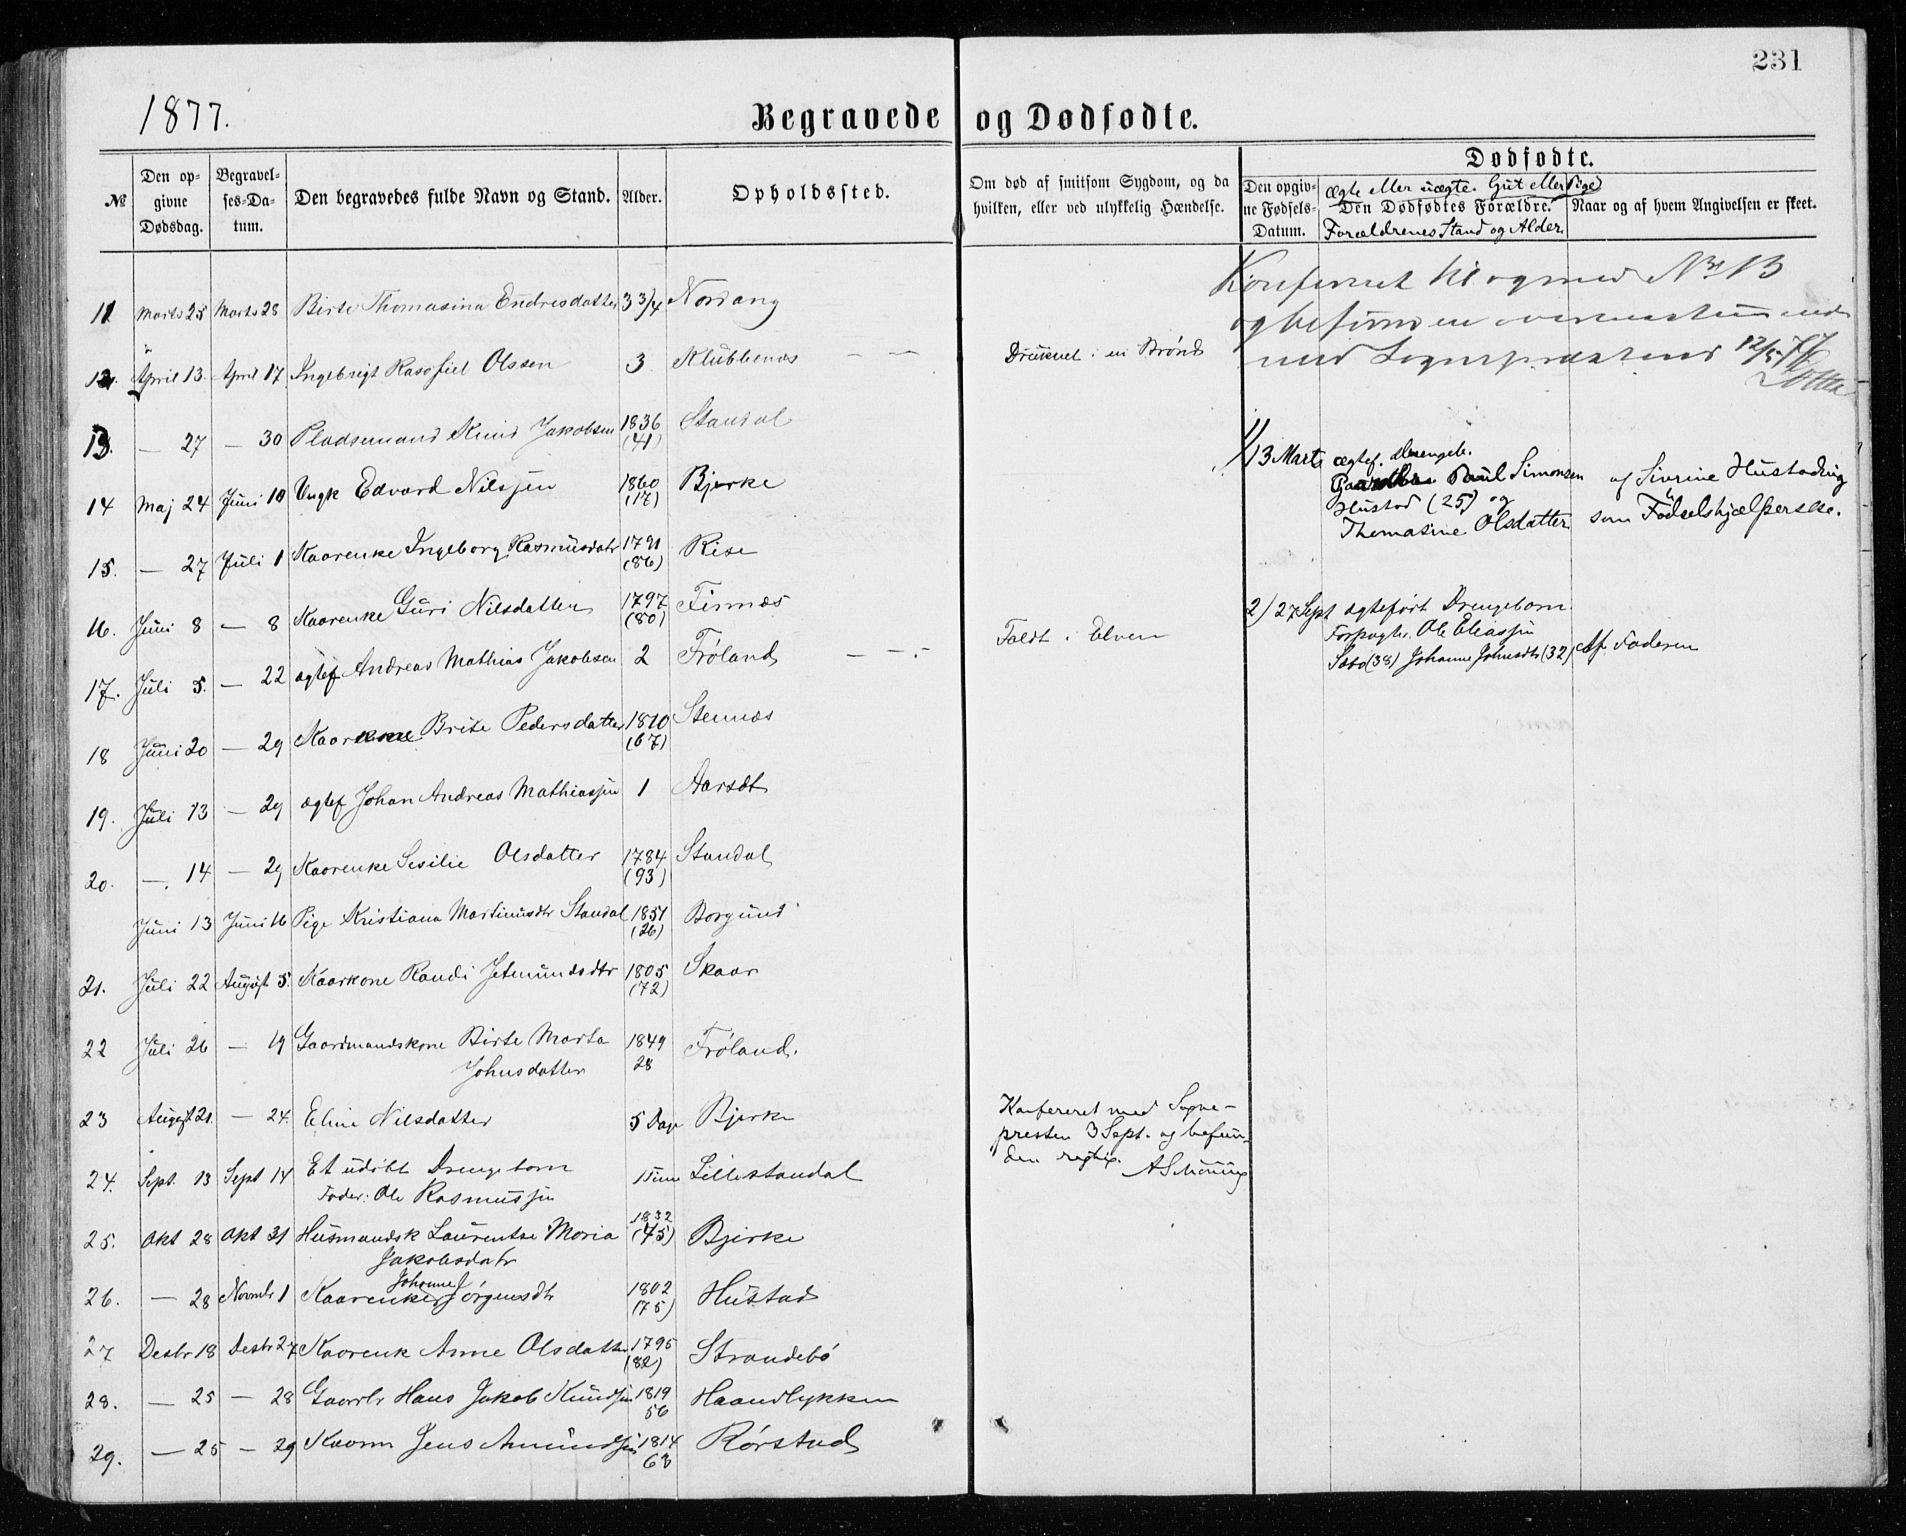 231
1877.
Begravede og Dødfødte.
№
Den opgivne Dødsdag.
Begravelses-Datum.
Den begravedes fulde Navn og Stand.
Alder.
Opholdssted.
Om død af smitsom Sygdom, og da hvilken, eller ved ulykkelig Hændelse.
Dødfødte.
Den opgivne Fødsels-Datum.
ægte eller uægte. Gut eller Pige
Den Dødfødtes Forældre.
Forældrenes Stand og Alder.
Naar og af hvem Angivelsen er skeet.
11 Marts 25 Marts 28 Birte Thomasina Endresdatter 3 3/4 Nordang
Konfereret til og med No 13
og befunden overensstemmende
med Sognepræstens 12/5 77
12. April 13. April 17 Ingebrigt Olsen 3 Klubbenæs — — Druknet i en Brønd
13. — 27 — 30 Pladsemand Knud Jakobsen 1836 (41) Standal
14 Maj 24 Juni 10 Ungk Edvard Nilssen 1860 (17) Bjerke
1/ 13 Marts ægtef. Drengeb.
Paul Simonsen
Hustad (25) og
Thomasine Olsdatter
af Sivrine Hustadeng
som Fødselshjælperske.
15. — 27 Juli 1 Kaarenke Ingeborg Rasmusdatr 1791 (86) Rise
16. Juni 8 — 8 Kaarenke Guri Nilsdatter 1797 (80) Finnæs
2/ 27 Sept ægtefødt Drengebarn
Forpagter Ole Eliassen
Sæbø (38) Johanne Johnsdtr (32) Af Faderen
17. Juli 5. — 22 ægtef Andreas Mathias Jakobsen 2 Frøland — — Faldt i Elven
18 Juni 20 — 29 Kaarkone Brite Pedersdatter 1810 (67) Stennæs
19. Juli 13 — 29 ægtef Johan Andreas Mathiassen 1 Aarsdt
20. — 14 — 29 Kaarenke Sesilie Olsdatter 1784 (93) Standal
Juni 13 Juni 16 Pige Kristiana Martinusdtr Standal 1851 (26) Borgund
21. Juli 22 August 5. Kaarkone Randi Jetmundsdtr 1805 (72) Skaar
22 Juli 26 — 19 Gaardmandskone Birte Marta Johnsdatter 1849 28 Frøland.
23 August 21. — 24. Eline Nilsdatter 5 Dage Bjerke
Konfereret med Sogne-
presten 3 Sept. og befun-
den rigtig.
A Schøning
24. Sept. 13 Sept 14 Et udøbt Drengebarn
Fader: Ole Rasmussen 1 Time Lillestandal
25. Okt 28 Okt 31 Husmandsk Laurentse Maria Jakobsdatr 1832 (45) Bjerke
26. — 28 Novmbr 1 Kaarenke Johanne Jørgensdtr 1802 (75) Hustad
27 Desbr 18 Desbr 27 Kaarenk Anne Olsdatter 1795 (82) Strandebø
28. — 25 — 28 Gaardbr Hans Jakob Knudsen 1819 56 Haandlykken
29. — 25 — 29 Kaarm Jens Amundsen 1814 63 Rørstad